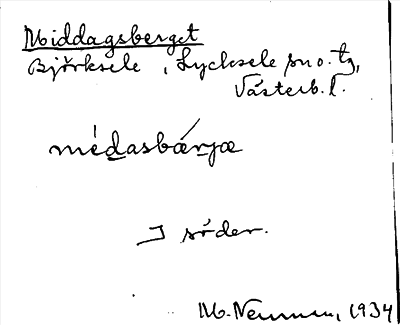 Middagsberget
Björksele, Lycksele sn o. tg,
Västerb. l.
médasbǽrjæ
I söder.
M. Neuman, 1934